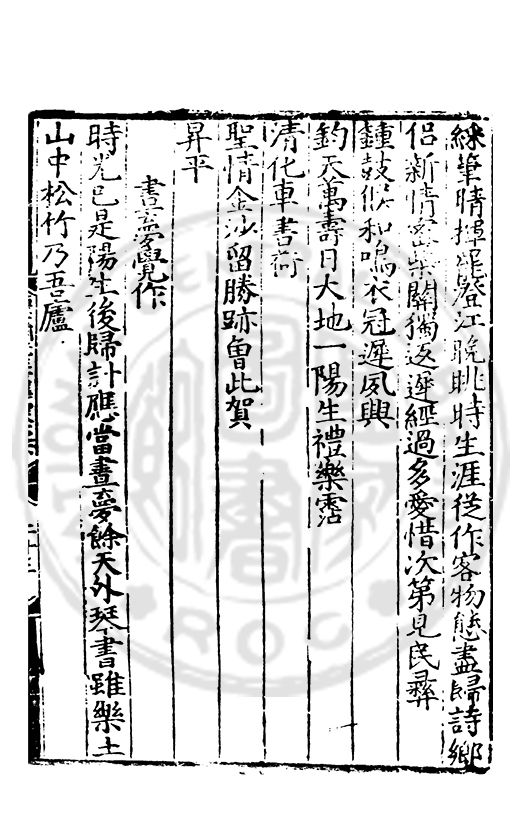 綵筆晴揮罷澄江晚眺時生涯從作客物態盡歸詩鄉
侶新情密柴關獨返遲經過多愛惜次第見民彝
鍾鼓依和鳴衣冠遲夙興
鈞天萬壽日大地一陽生禮樂霑
清化車書荷
聖情金沙留勝跡曾此賀
昇平
書畫夢覺作
時光已是陽生後歸計應當晝夢餘天外琴書雖樂土
山中松竹乃吾廬